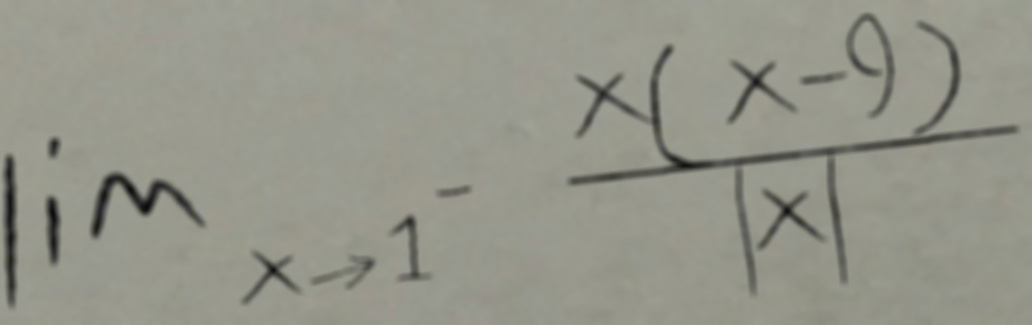 lim x→1⁻ x(x-9)/|x|